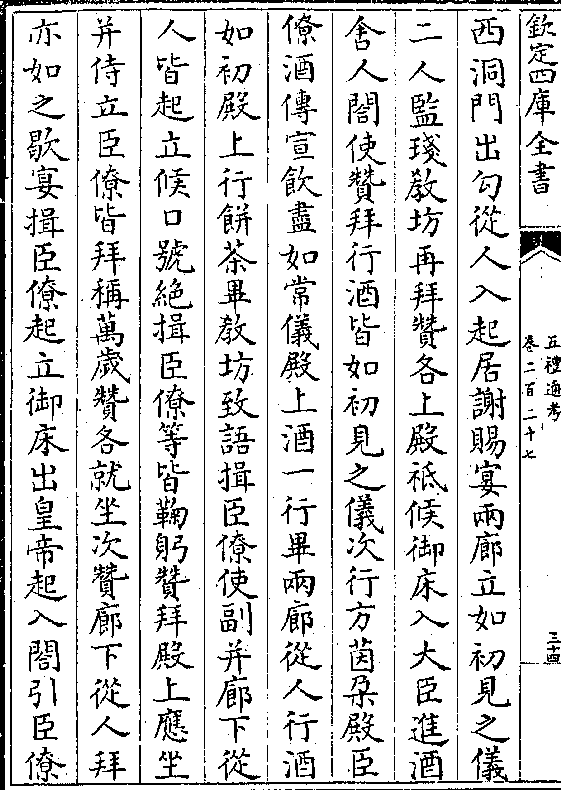 欽定四庫全書
五禮通考
卷二百二十七
三十四
西洞門出勾從人入起居謝賜宴兩廊立如初見之儀
二人監琖敎坊再拜贊各上殿祗候御床入大臣進酒
舍人閤使贊拜行酒皆如初見之儀次行方茵朶殿臣
僚酒傳宣飲盡如常儀殿上酒一行畢兩廊從人行酒
如初殿上行餅茶畢敎坊致語揖臣僚使副并廊下從
人皆起立候口號絶揖臣僚等皆鞠躬贊拜殿上應坐
并侍立臣僚皆拜稱萬歲贊各就坐次贊廊下從人拜
亦如之歇宴揖臣僚起立御床出皇帝起入閤引臣僚